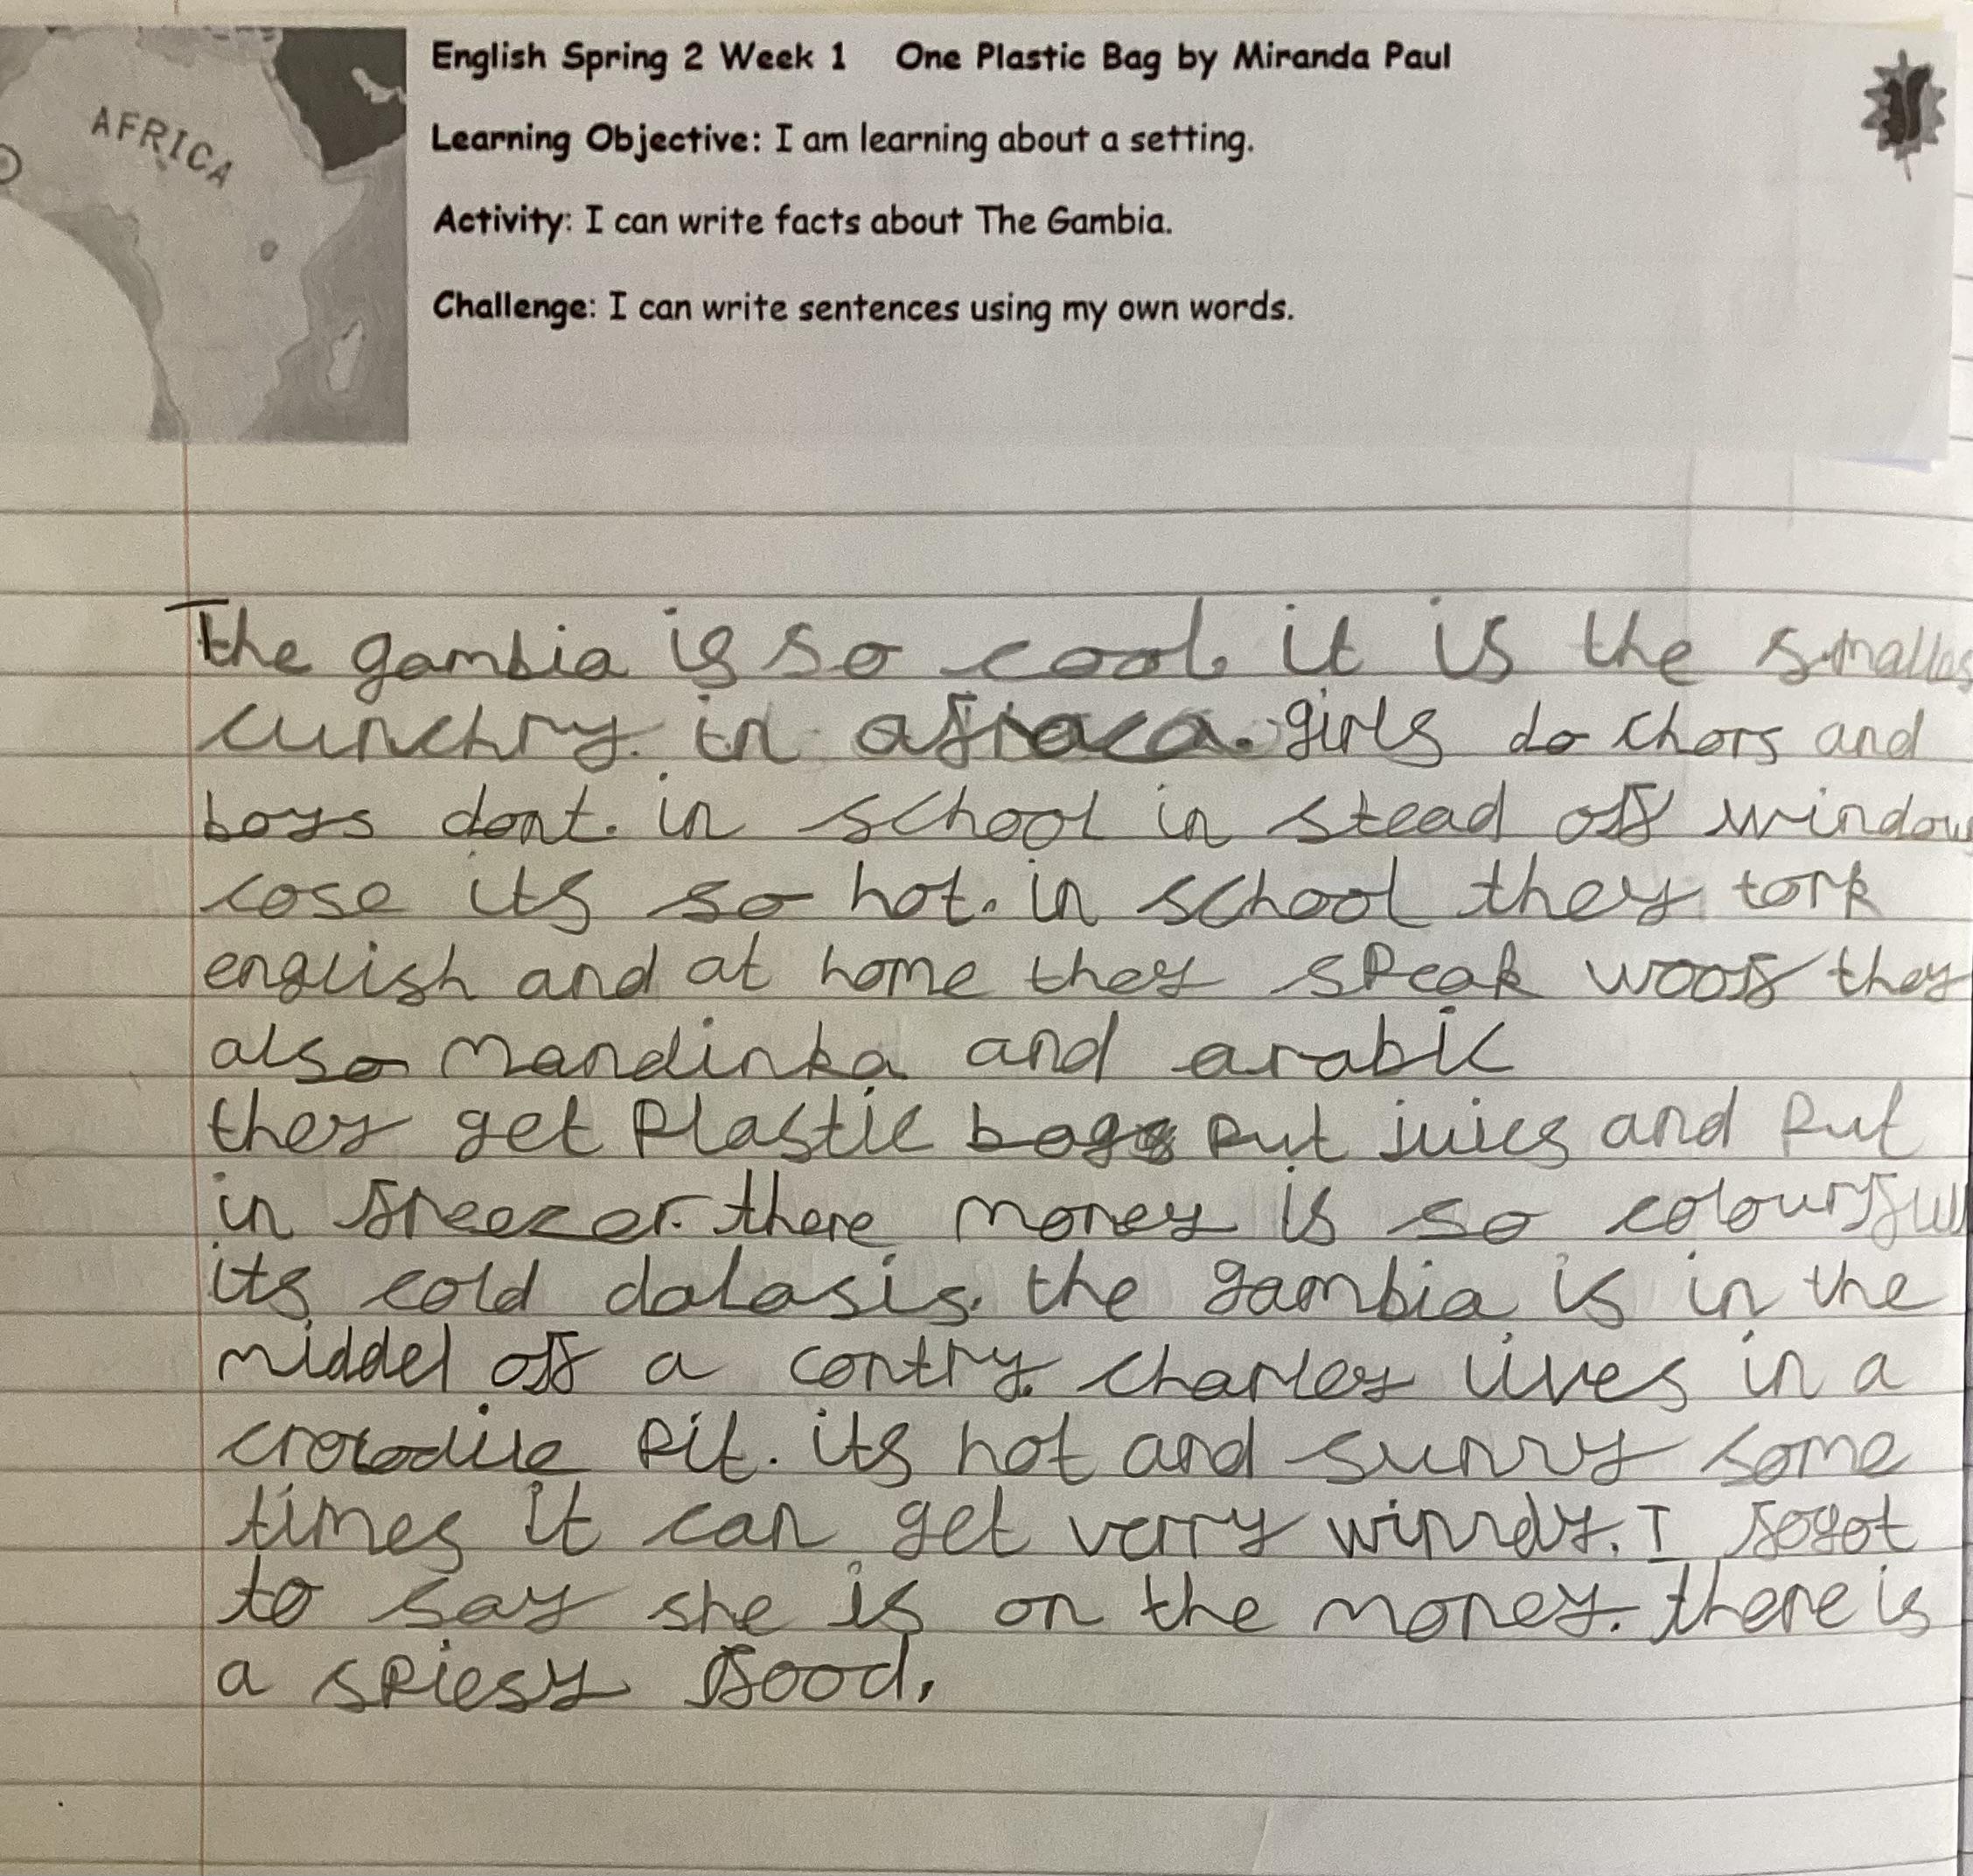 AFRICA
English Spring 2 Week 1 One Plastic Bag by Miranda Paul
Learning Objective: I am learning about a setting.
Activity: I can write facts about The Gambia.
Challenge: I can write sentences using my own words.
The gambia is so cool. it is the smalles
cunchry. in afraca. girls do chors and
boys dont. in school in stead off window
cose its so hot. in school they tork
english and at home they speak woof they
also Mandinka and arabic
they get Plastic bags put juics and put
in freezer. there money is so colourful
its cold dalasis. the gambia is in the
middel off a contry. charley lives in a
crocodile pit. its hot and sunny some
times it can get verry winndy. I fogot
to say she is on the money. there is
a spiesy food.